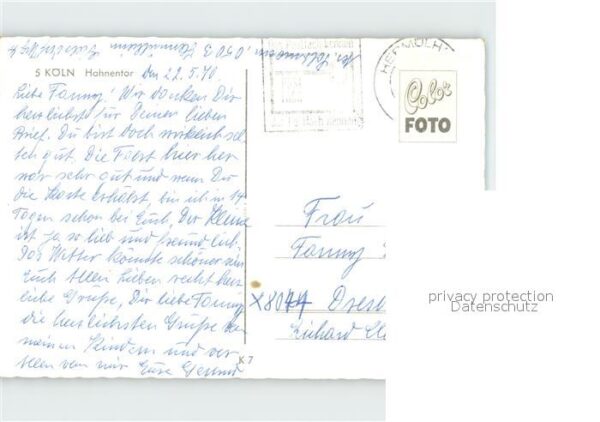 5 KÖLN Hahnentor den 22.5.70
Liebe Fanny! Wir danken Dir
herzlichst für Deinen lieben
Brief. Du bist doch wirklich sel-
ten gut. Die Fahrt hier her
war sehr gut und wenn Du
die Karte erhälst, bin ich in 14
Tagen schon bei Euch. Der Kleine
ist ja so lieb und freundlich.
Das Wetter könnte schöner sein
Euch Allen Lieben recht herz
liche Grüße, Dir liebe Fanny
die herzlichsten Grüße von
meinen Kindern und vor
Allem von mir Eure
K 7
HERMÜLH
Color
FOTO
Frau
Fanny
X8044 Dresd
Richard
privacy protection
Datenschutz